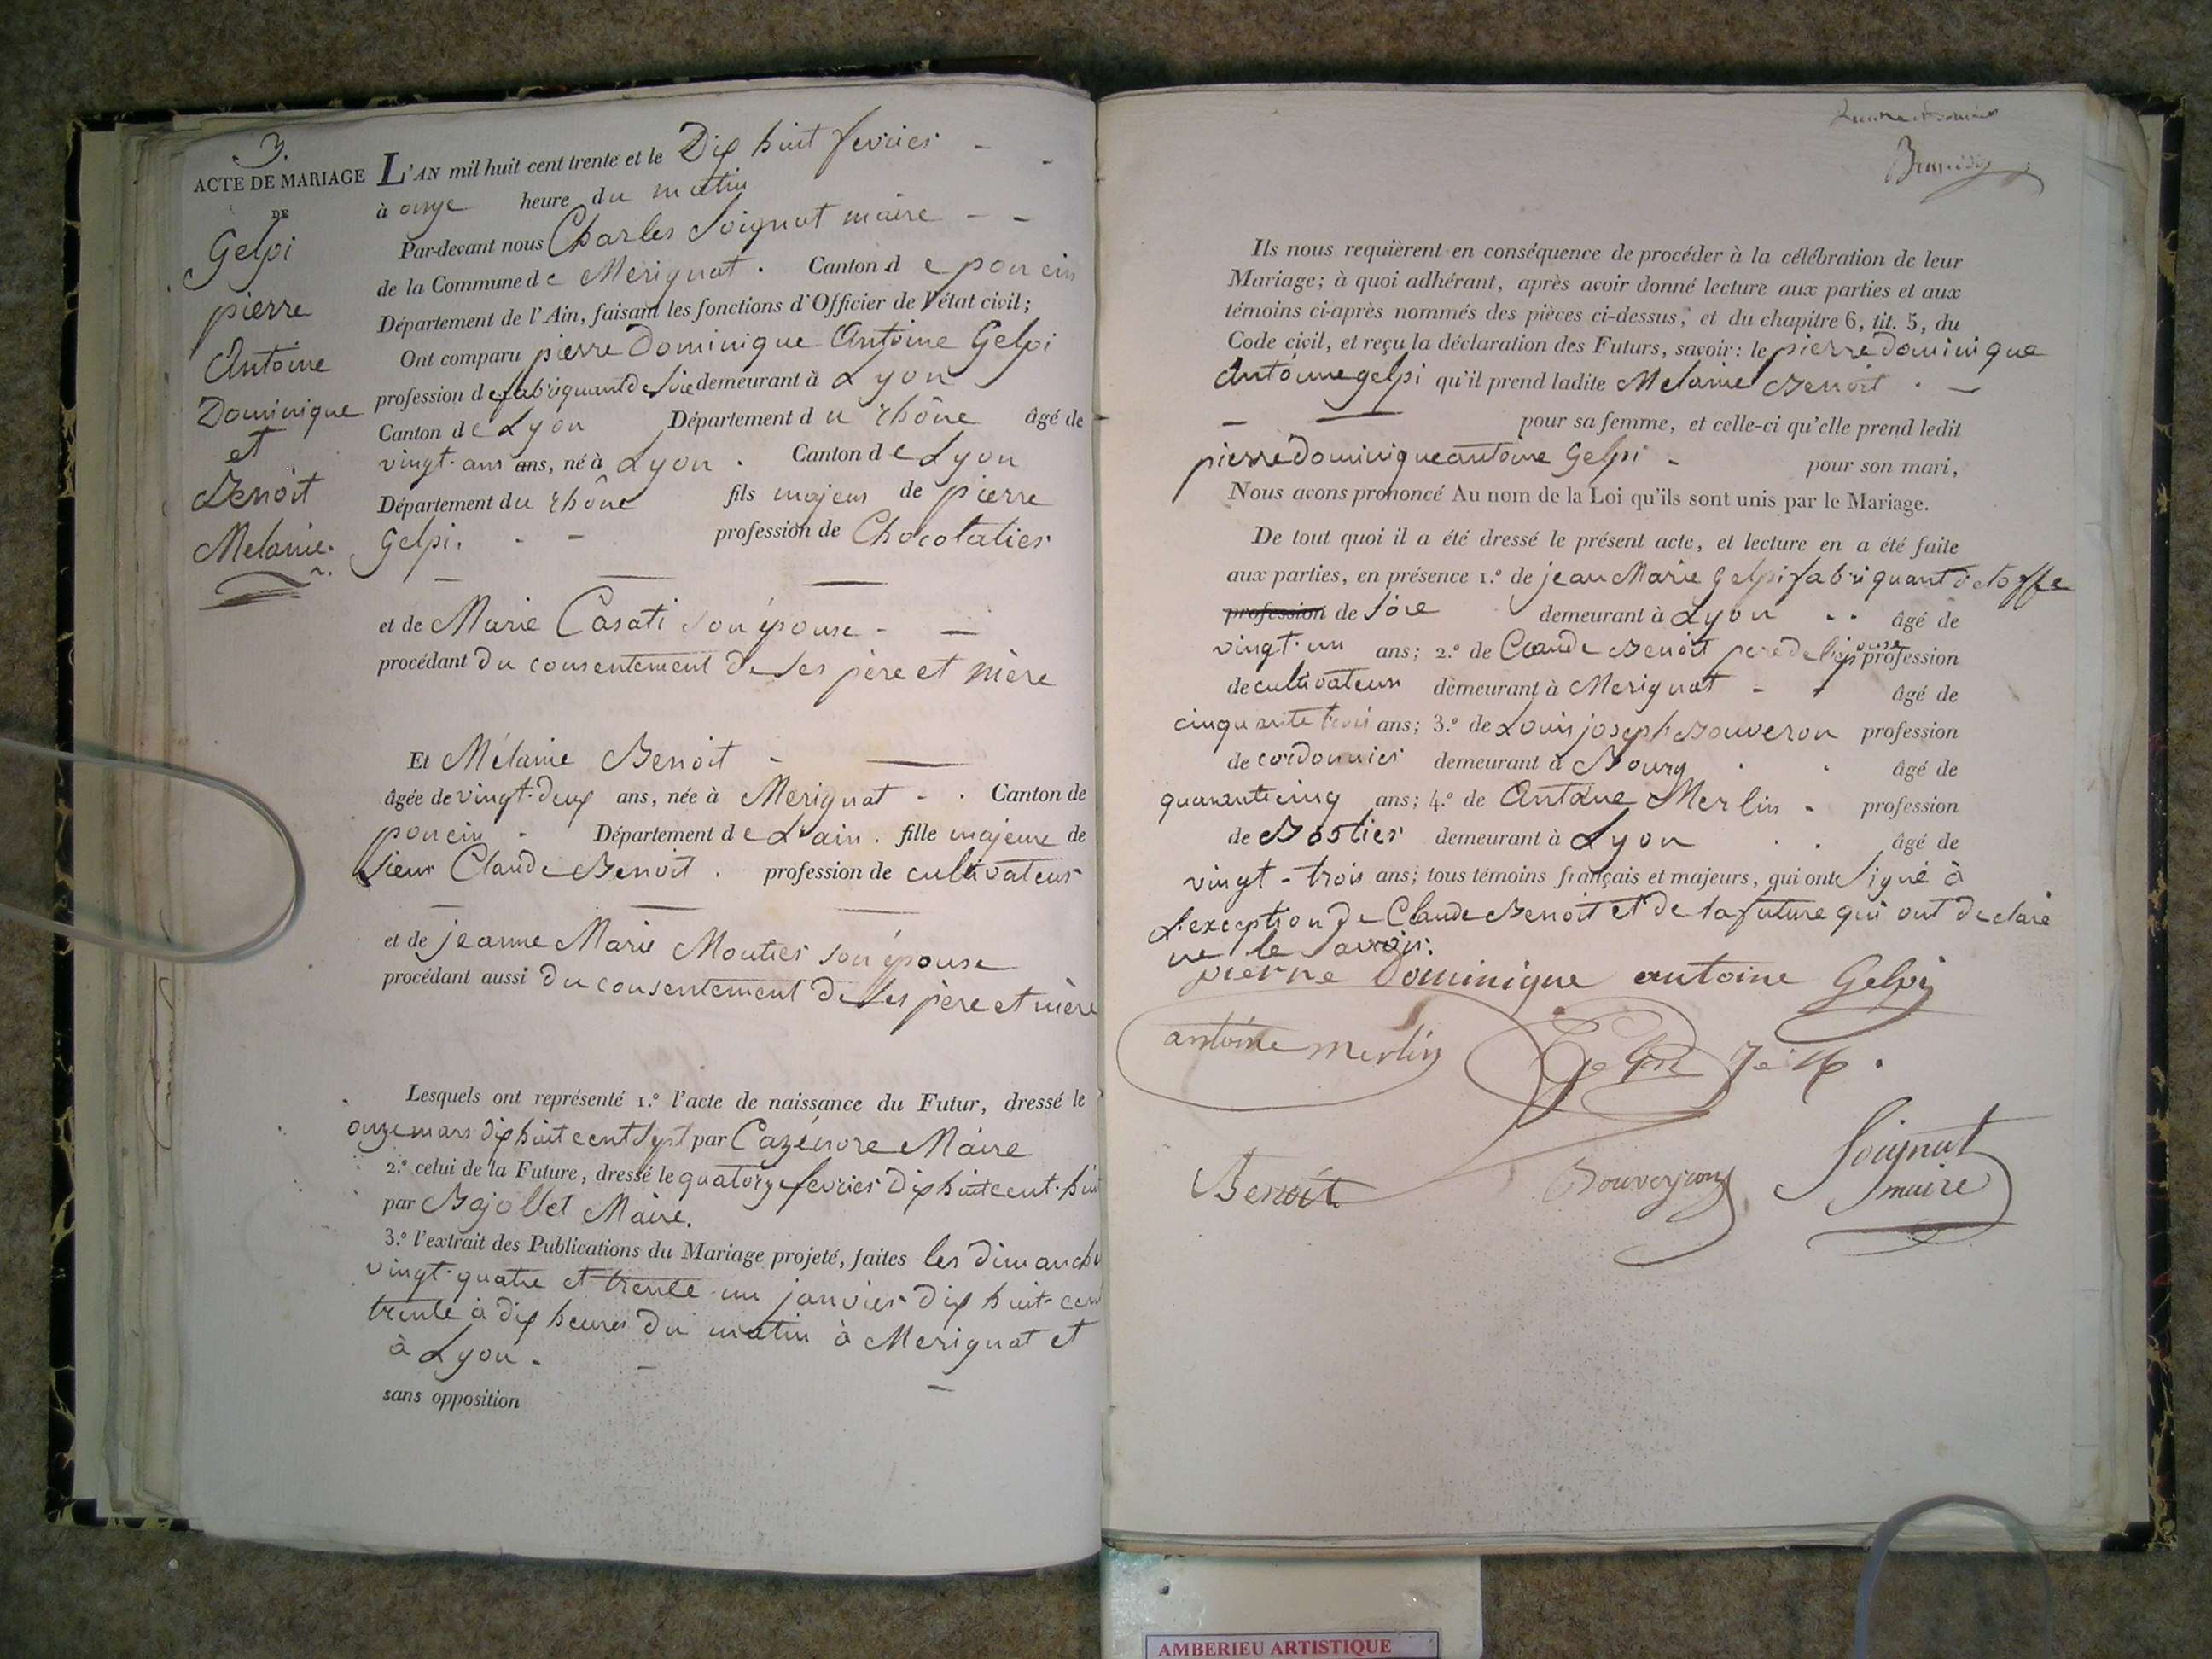 3.
ACTE DE MARIAGE
DE
Gelpi
pierre
Antoine
Dominique
et
Benoit
Melanie.
L'AN mil huit cent trente et le Dix huit fevrier
à onze heure du matin
Par-devant nous Charles Soignat maire
de la Commune de Merignat. Canton de poncin
Département de l'Ain, faisant les fonctions d'Officier de l'état civil;
Ont comparu pierre Dominique Antoine Gelpi
profession de fabriquant de soie demeurant à Lyon
Canton de Lyon Département du rhône âgé de
vingt-ans ans, né à Lyon. Canton de Lyon
Département du rhône fils majeur de pierre
Gelpi. profession de Chocolatier
et de Marie Casati son épouse
procédant du consentement de ses père et mère
Et Mélanie Benoit
âgée de vingt-deux ans, née à Merignat Canton de
poncin Département de L'ain. fille majeure de
sieur Claude Benoit. profession de cultivateur
et de jeanne Marie Moutier son épouse
procédant aussi du consentement de ses père et mère
Lesquels ont représenté 1.º l'acte de naissance du Futur, dressé le
onze mars dix huit cent sept par Cazénove Maire
2.º celui de la Future, dressé le quatorze fevrier dix huit cent huit
par Bajollet Maire.
3.º l'extrait des Publications du Mariage projeté, faites les dimanche
vingt-quatre et trente-un janvier dix huit-cent
trente à dix heures du matin à Merignat et
à Lyon.
sans opposition
Ils nous requièrent en conséquence de procéder à la célébration de leur
Mariage; à quoi adhérant, après avoir donné lecture aux parties et aux
témoins ci-après nommés des pièces ci-dessus, et du chapitre 6, tit. 5, du
Code civil, et reçu la déclaration des Futurs, savoir: le pierre dominique
antoinne gelpi qu'il prend ladite Melanie Benoit.
pour sa femme, et celle-ci qu'elle prend ledit
pierre dominique antoine Gelpi pour son mari,
Nous avons prononcé Au nom de la Loi qu'ils sont unis par le Mariage.
De tout quoi il a été dressé le présent acte, et lecture en a été faite
aux parties, en présence 1.º de jean Marie Gelpi fabriquant d'etoffe
profession de soie demeurant à Lyon âgé de
vingt-un ans; 2.º de Claude Benoit pere de l'epouse profession
de cultivateur demeurant à Merignat âgé de
cinquante trois ans; 3.º de Louis joseph Bouveron profession
de cordonnier demeurant à Bourg âgé de
quarante cinq ans; 4.º de Antoine Merlin profession
de Bostier demeurant à Lyon âgé de
vingt-trois ans; tous témoins français et majeurs, qui ont signé à
L'exception de Claude Benoit et de la future qui ont declaré
ne le savoir.
pierre Dominique antoine Gelpi
antoine merlin
Benoit
Bouveyron
Soignat
maire
AMBERIEU ARTISTIQUE